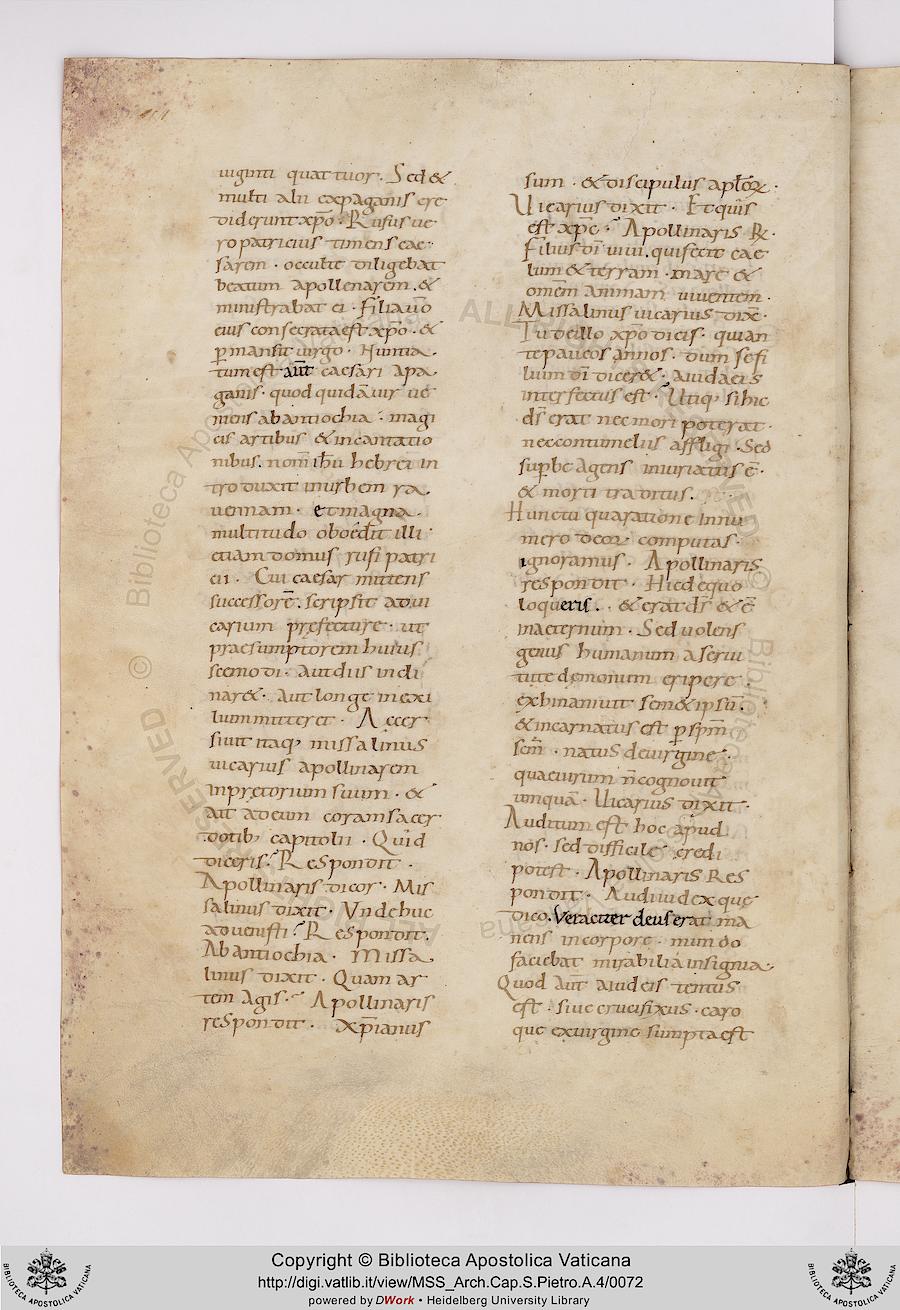 uiginti quattuor. Sed &
multi alii expaganis cre
diderunt xp̄o. Rufus ue
ro patricius timens cae
sarem. occulte diligebat
beatum apollenarem. &
ministrabat ei. Filia u̅o
eius consecrata est xp̄o. &
ꝑmansit uirgo. Nuntia
tum est au̅t caesari apa
ganis. quod quida̅ uir ue
niens abantiochia. magi
cis artibus & incantatio
nibus. nom̅ ih̅u hebrei in
troduxit inurbem ra
uennam. et magna
multitudo oboedit illi
etiam domus rufi patri
cii. Cui caesar mittens
successore̅. scripsit adui
carium prefecture. ut
praesumptorem huius
scemodi. aut diis incli
nar&. Aut longe inexi
lium mitteret. Accer
siuit itaq; missalinus
uicarius apollinarem
inpretorium suum. &
ait adeum coram sacer
dotib; capitolii. Quid
diceris? Respondit.
Apollinaris dicor. Mis
salinus dixit. Vnde huc
aduenisti? Respondit.
Abantiochia. Missa
linus dixit. Quam ar
tem agis? Apollinaris
respondit. Xp̅ianus
sum. & discipulus ap̅lor̅ꝝ.
Uicarius dixit. Et quis
est xp̅c? Apollinaris R̅.
Filius di̅ uiui. qui fecit cae
lum & terram. mare &
omne̅m animam uiuentem.
Missalinus uicarius dix̅.
Tu de illo xp̅o dicis. quian
te paucos annos. dum se fi
lium di̅ dicer&. a iudaeis
interfectus est? Utiq; si hic
ds̅ erat nec mori poterat.
nec contumeliis affligi. Sed
supbe agens iniuriatus e̅.
& morti traditus.
Hunc tu qua ratione innu
mero deor̅ computas.
ignoramus. Apollinaris
respondit. Hic de quo
loqueris. & erat ds̅ & e̅
inaeternum. Sed uolens
genus humanum a serui
tute demonum eripere.
exinaniuit sem&ipsu̅.
& incarnatus est ꝑ spm̅
scm̅. natus de uirgine.
quae uirum n̅ cognouit
unqua̅. Uicarius dixit.
Auditum est hoc apud
nos. sed difficile credi
potest. Apollinaris Res
pondit. Audi iudex que
dico. Veraciter deus erat ma
nens incorpore. mundo
faciebat mirabilia insignia.
Quod au̅t a iudeis temtus
est. siue crucifixus. caro
que exuirgine sumpta est
Copyright © Biblioteca Apostolica Vaticana
http://digi.vatlib.it/view/MSS_Arch.Cap.S.Pietro.A.4/0072
powered by DWork • Heidelberg University Library